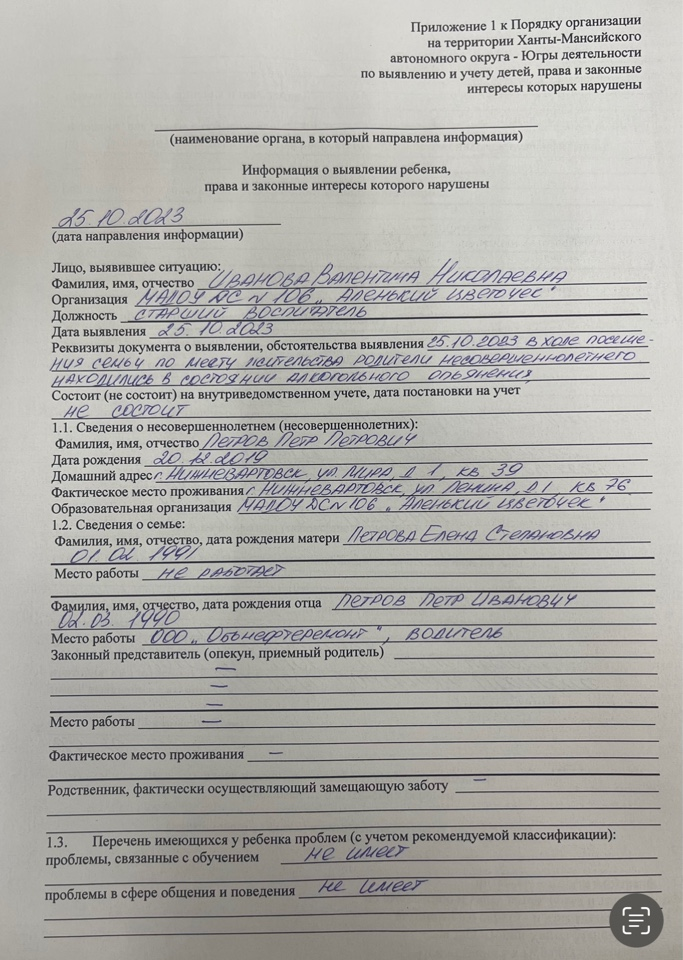 Приложение 1 к Порядку организации
на территории Ханты-Мансийского
автономного округа - Югры деятельности
по выявлению и учету детей, права и законные
интересы которых нарушены
(наименование органа, в который направлена информация)
Информация о выявлении ребенка,
права и законные интересы которого нарушены
25.10.2023
(дата направления информации)
Лицо, выявившее ситуацию:
Фамилия, имя, отчество Иванова Валентина Николаевна
Организация МАДОУ ДС N 106 „Аленький цветочек"
Должность старший воспитатель
Дата выявления 25.10.2023
Реквизиты документа о выявлении, обстоятельства выявления 25.10.2023 в ходе посеще-
ния семьи по месту жительства родители несовершеннолетнего
находились в состоянии алкогольного опьянения
Состоит (не состоит) на внутриведомственном учете, дата постановки на учет
не состоит
1.1. Сведения о несовершеннолетнем (несовершеннолетних):
Фамилия, имя, отчество Петров Петр Петрович
Дата рождения 20.12.2019
Домашний адрес г. Нижневартовск, ул Мира, д 1, кв 39
Фактическое место проживания г. Нижневартовск, ул Ленина, д 1 кв 76
Образовательная организация МАДОУ ДС N 106 „Аленький цветочек"
1.2. Сведения о семье:
Фамилия, имя, отчество, дата рождения матери Петрова Елена Степановна
01.02.1991
Место работы не работает
Фамилия, имя, отчество, дата рождения отца Петров Петр Иванович
02.03.1990
Место работы ООО „Обьнефтеремонт", водитель
Законный представитель (опекун, приемный родитель)
—
—
—
Место работы —
Фактическое место проживания —
Родственник, фактически осуществляющий замещающую заботу —
1.3. Перечень имеющихся у ребенка проблем (с учетом рекомендуемой классификации):
проблемы, связанные с обучением не имеет
проблемы в сфере общения и поведения не имеет